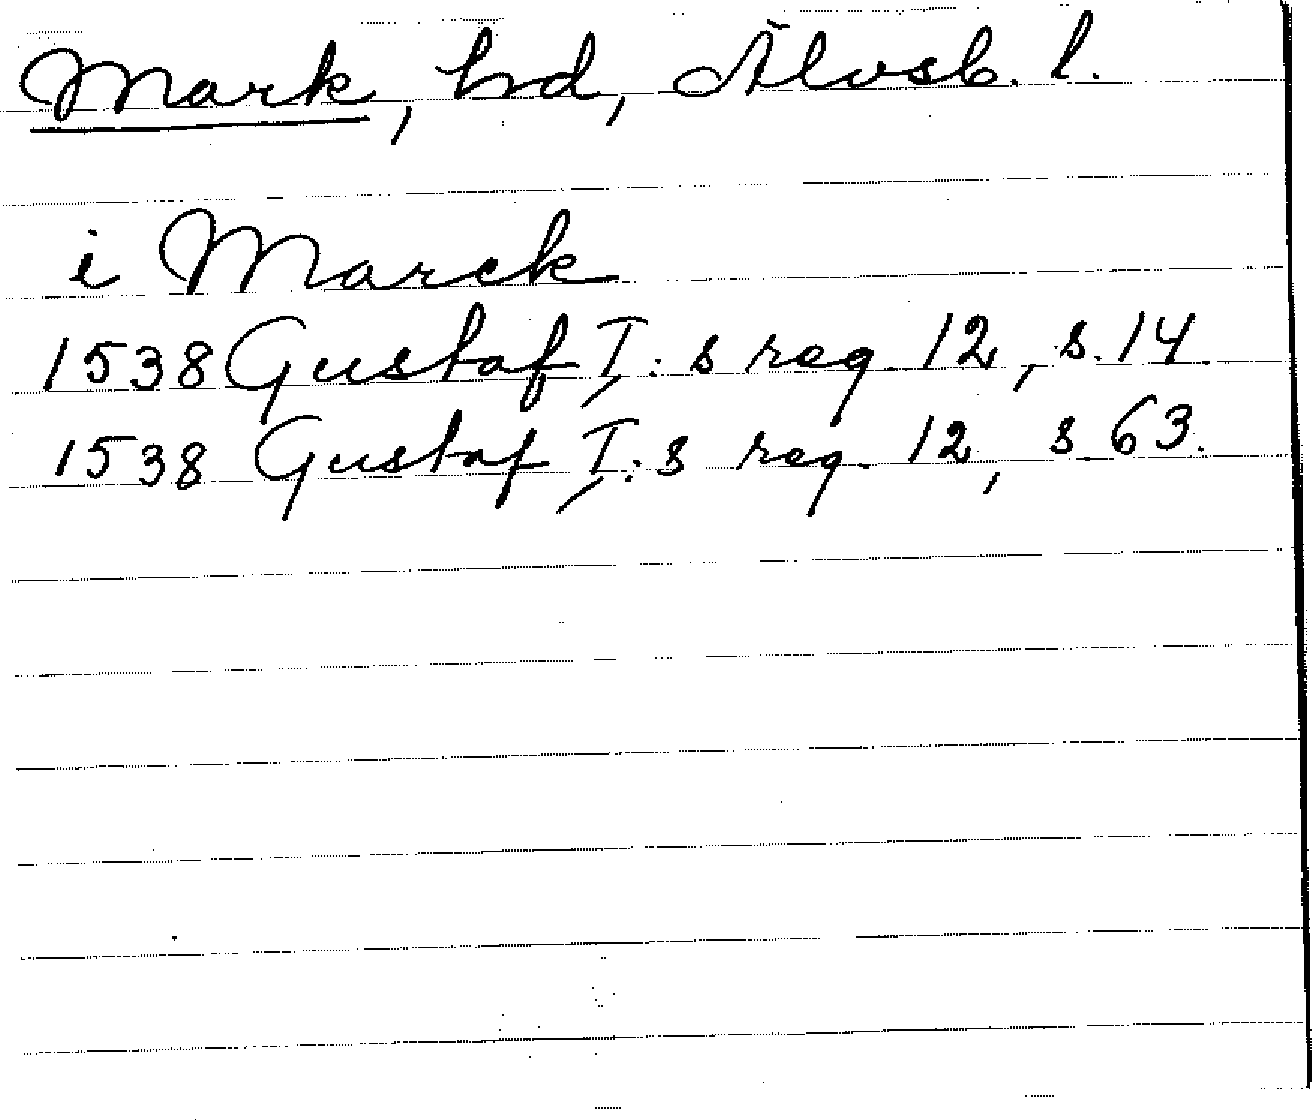 Mark, hd, Älvsb. l.
i Marck
1538 Gustaf I:s reg. 12, s. 14
1538 Gustaf I:s reg. 12, s 63.